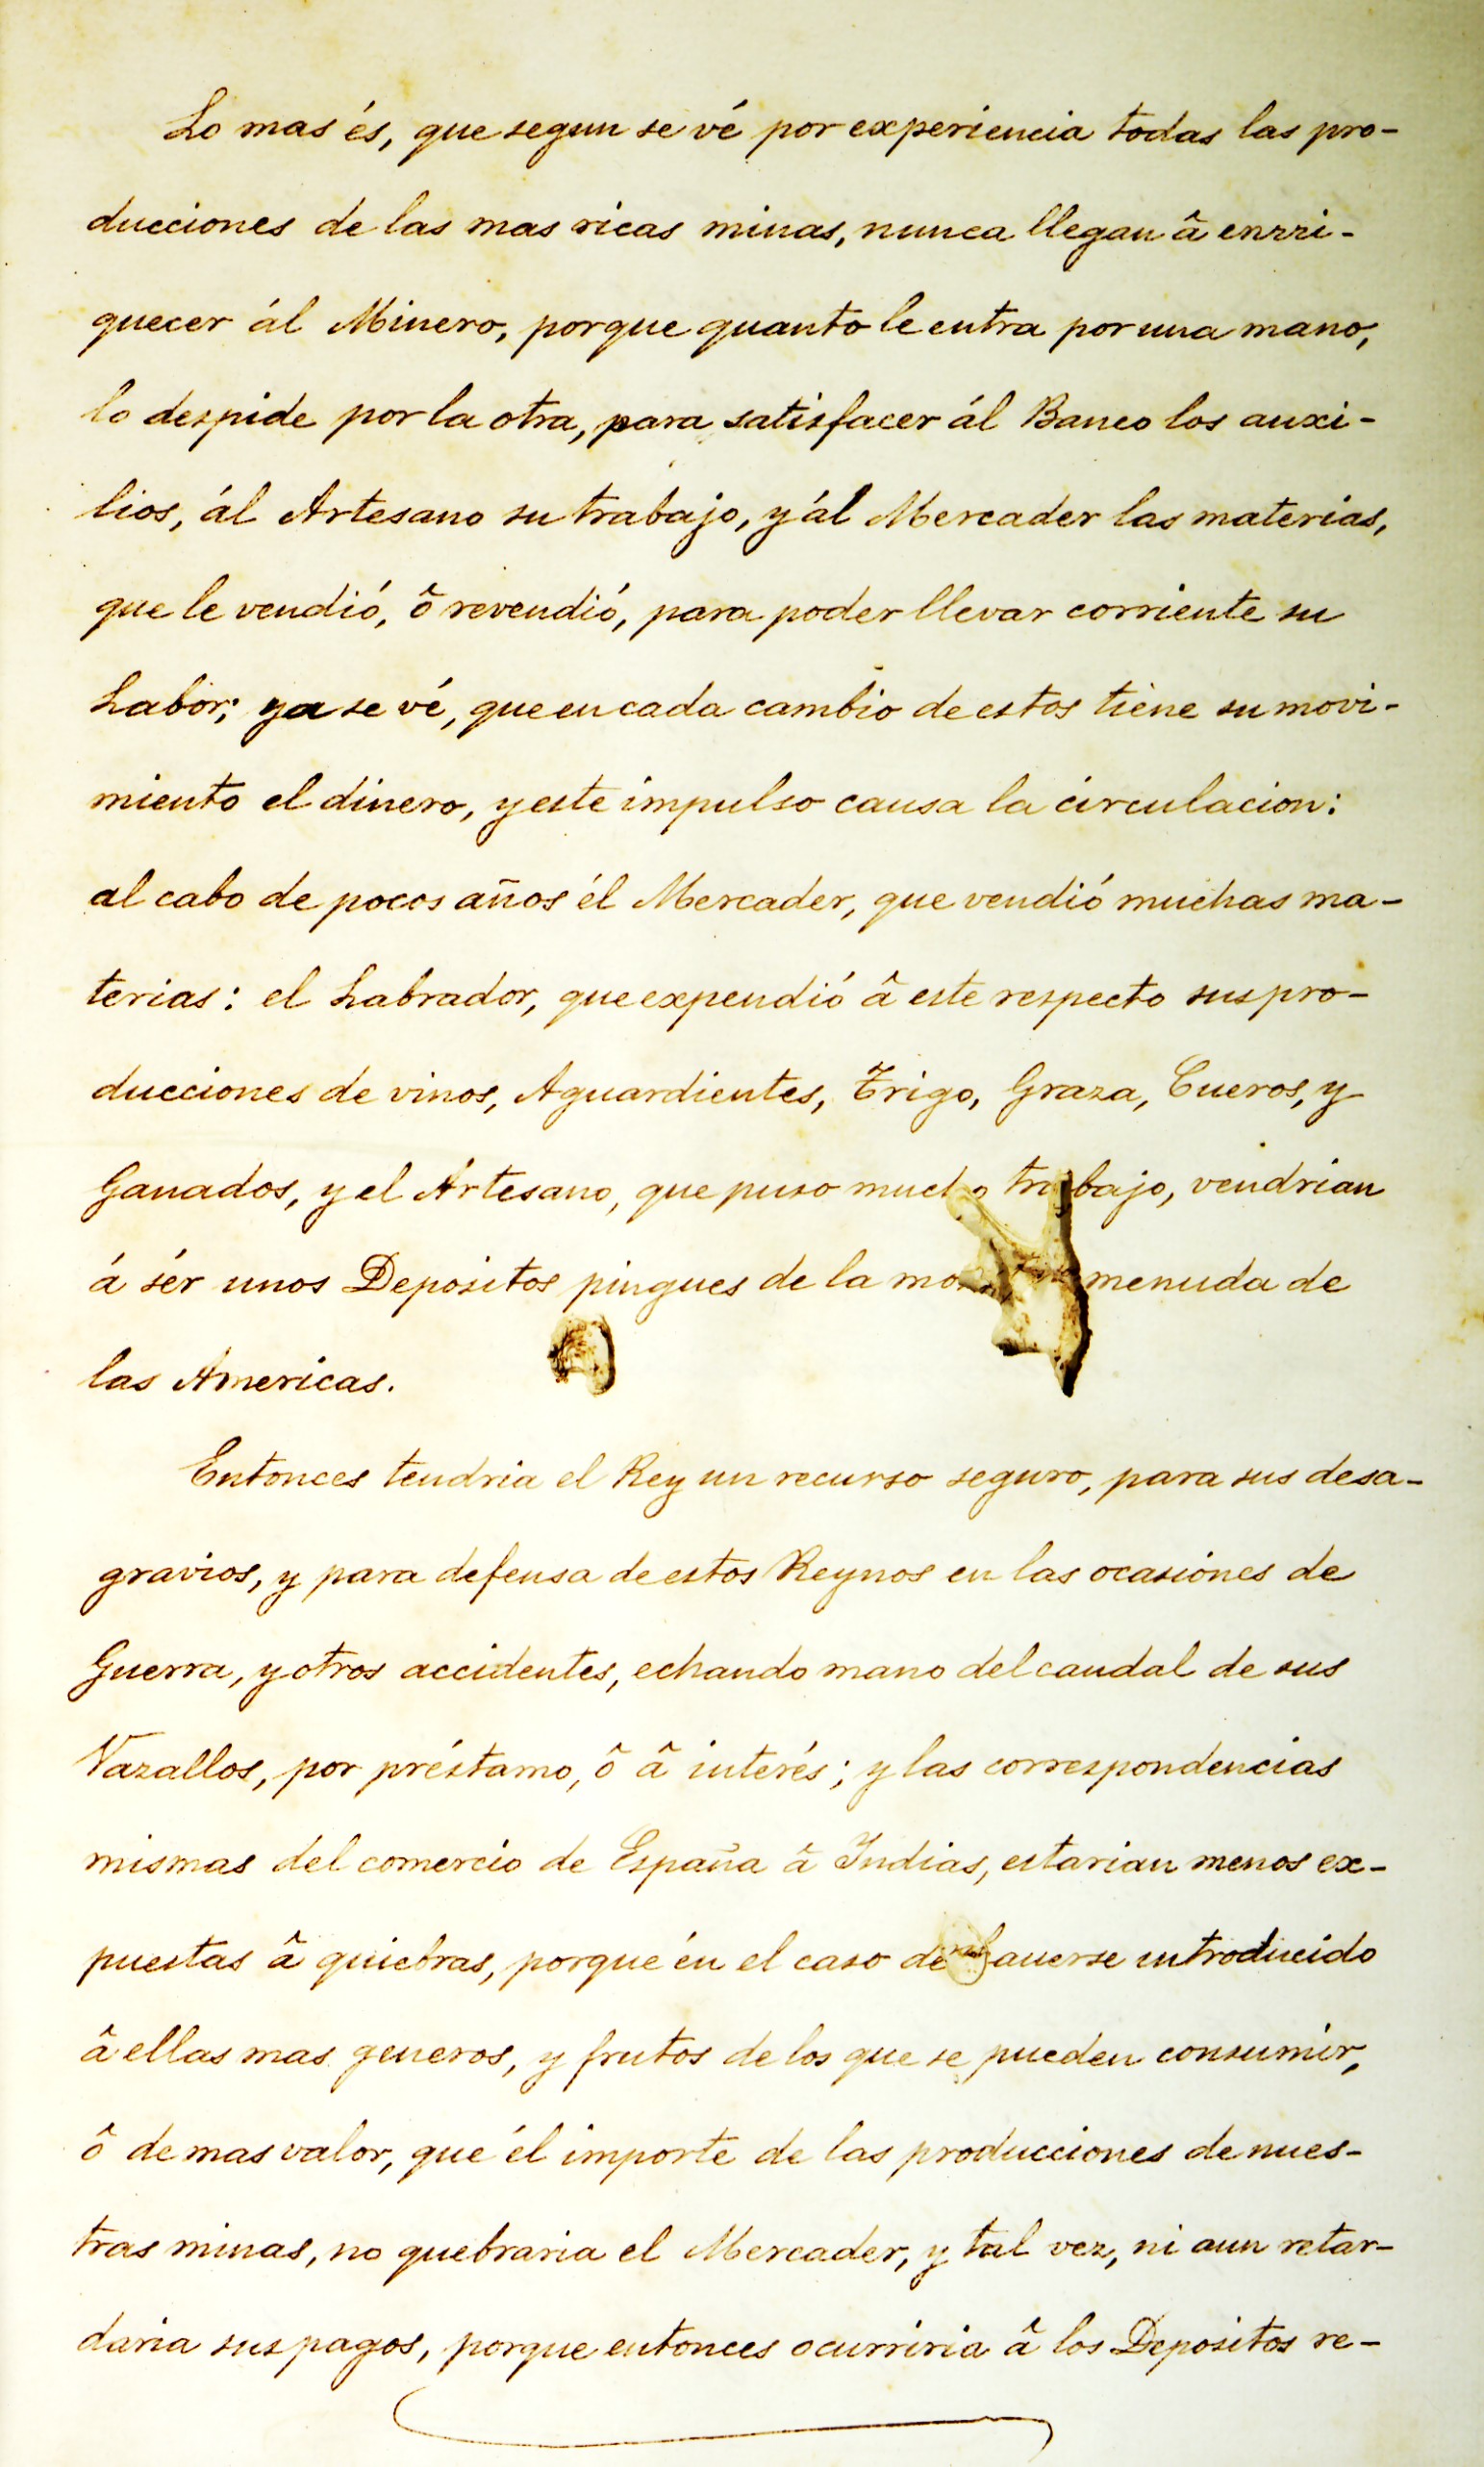 Lo mas és, que segun se vé por experiencia todas las pro-
ducciones de las mas ricas minas, nunca llegan â enrri-
quecer ál Minero, porque quanto le entra por una mano,
lo despide por la otra, para satisfacer ál Banco los auxi-
lios, ál Artesano su trabajo, y ál Mercader las materias,
que le vendió, ô revendió, para poder llevar corriente su
Labor; ya se vé, que en cada cambio de estos tiene su movi-
miento el dinero, y este impulso causa la circulacion:
al cabo de pocos años él Mercader, que vendió muchas ma-
terias: el Labrador, que expendió â este respecto sus pro-
ducciones de vinos, Aguardientes, Trigo, Graza, Cueros, y
Ganados, y el Artesano, que puso mucho trabajo, vendrian
á sér unos Depositos pingues de la menuda de
las Americas.
Entonces tendria el Rey un recurso seguro, para sus desa-
gravios, y para defensa de estos Reynos en las ocasiones de
Guerra, y otros accidentes, echando mano del caudal de sus
Vazallos, por préstamo, ô â interés; y las correspondencias
mismas del comercio de España â Indias, estarian menos ex-
puestas â quiebras, porque én el caso de hauerse introducido
â ellas mas generos, y frutos de los que se pueden consumir,
ô de mas valor, que él importe de las producciones de nues-
tras minas, no quebraria el Mercader, y tal vez, ni aun retar-
daria sus pagos, porque entonces ocurriria â los Depositos re-